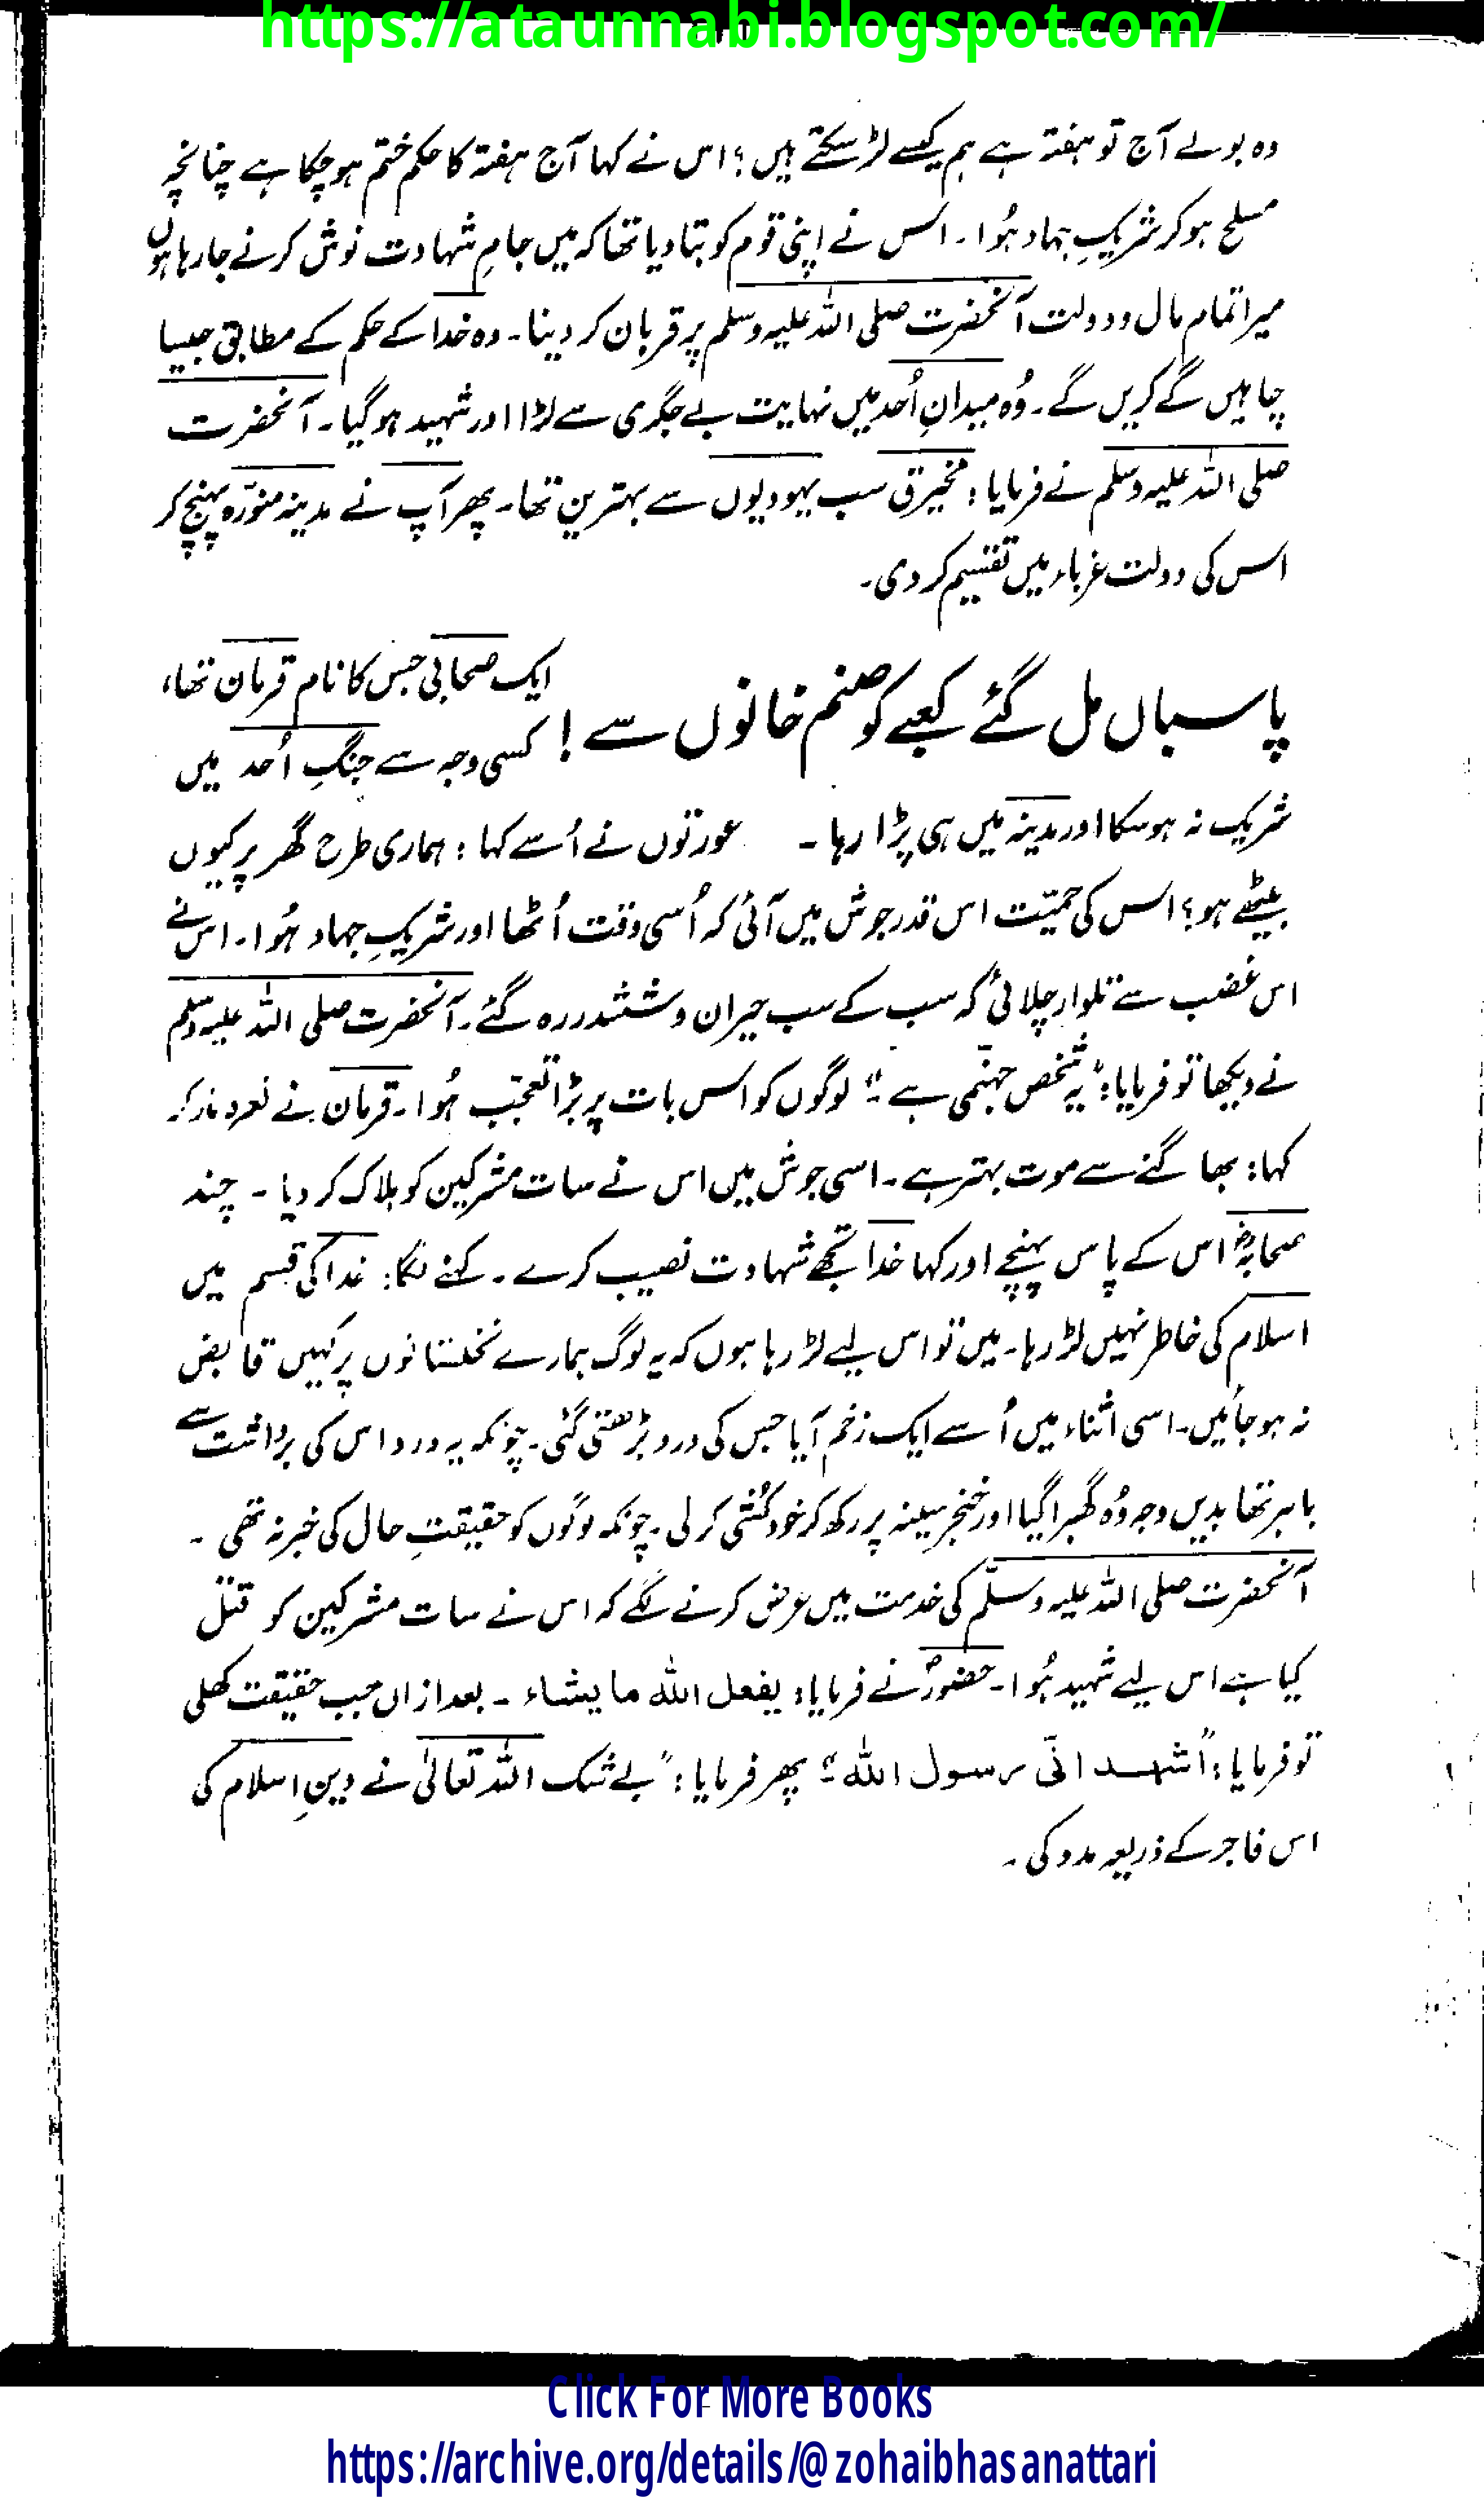 https://ataunnabi.blogspot.com/
وہ بولے آج تو ہفتہ ہے ہم کیسے لڑ سکتے ہیں؟ اس نے کہا آج ہفتہ کا حکم ختم ہو چکا ہے چنانچہ
مسلح ہو کر شریکِ جہاد ہُوا۔ اس نے اپنی قوم کو بتا دیا تھا کہ میں جامِ شہادت نوش کرنے جا رہا ہوں
میرا تمام مال و دولت آنحضرت صلی اللہ علیہ وسلم پر قربان کر دینا۔ وہ خدا کے حکم کے مطابق جیسا
چاہیں گے کریں گے۔ وُہ میدانِ اُحد میں نہایت بے جگری سے لڑا اور شہید ہو گیا۔ آنحضرت
صلی اللہ علیہ وسلم نے فرمایا: مخیرق سب یہودیوں سے بہترین تھا۔ پھر آپ نے مدینہ منورّہ پہنچ کر
اس کی دولت غرباء میں تقسیم کر دی۔
پاسباں مل گئے کعبے کو صنم خانوں سے!
ایک صحابی جس کا نام قزمان تھا،
کسی وجہ سے جنگِ اُحد میں
شریک نہ ہو سکا اور مدینہ میں ہی پڑا رہا۔ عورتوں نے اُسے کہا: ہماری طرح گھر پر کیوں
بیٹھے ہو؟ اس کی حمیّت اس قدر جوش میں آئی کہ اُسی وقت اُٹھا اور شریکِ جہاد ہُوا۔ اس نے
اس غضب سے تلوار چلائی کہ سب کے سب حیران و ششدر رہ گئے۔ آنحضرت صلی اللہ علیہ وسلم
نے دیکھا تو فرمایا: "یہ شخص جہنّمی ہے۔" لوگوں کو اس بات پر بڑا تعجّب ہُوا۔ قزمان نے نعرہ مار کر
کہا: بھاگنے سے موت بہتر ہے۔ اسی جوش میں اس نے سات مشرکین کو ہلاک کر دیا۔ چند
صحابہؓ اس کے پاس پہنچے اور کہا خدا تجھے شہادت نصیب کرے۔ کہنے لگا: خدا کی قسم میں
اسلام کی خاطر نہیں لڑ رہا۔ میں تو اس لیے لڑ رہا ہوں کہ یہ لوگ ہمارے نخلستانوں پر کہیں قابض
نہ ہو جائیں۔ اسی اثناء میں اُسے ایک زخم آیا جس کی درد بڑھتی گئی۔ چونکہ یہ درد اس کی برداشت سے
باہر تھا بدیں وجہ وُہ گھبرا گیا اور خنجر سینہ پر رکھ کر خودکُشی کر لی۔ چونکہ لوگوں کو حقیقتِ حال کی خبر نہ تھی۔
آنحضرت صلی اللہ علیہ وسلّم کی خدمت میں عرض کرنے لگے کہ اس نے سات مشرکین کو قتل
کیا ہے اس لیے شہید ہُوا۔ حضورؐ نے فرمایا: یفعل اللہ ما یشاء۔ بعد ازاں جب حقیقت کھلی
تو فرمایا: "اشہد انّی رسول اللہ۔" پھر فرمایا: "بے شک اللہ تعالیٰ نے دینِ اسلام کی
اس فاجر کے ذریعہ مدد کی۔
Click For More Books
https://archive.org/details/@zohaibhasanattari